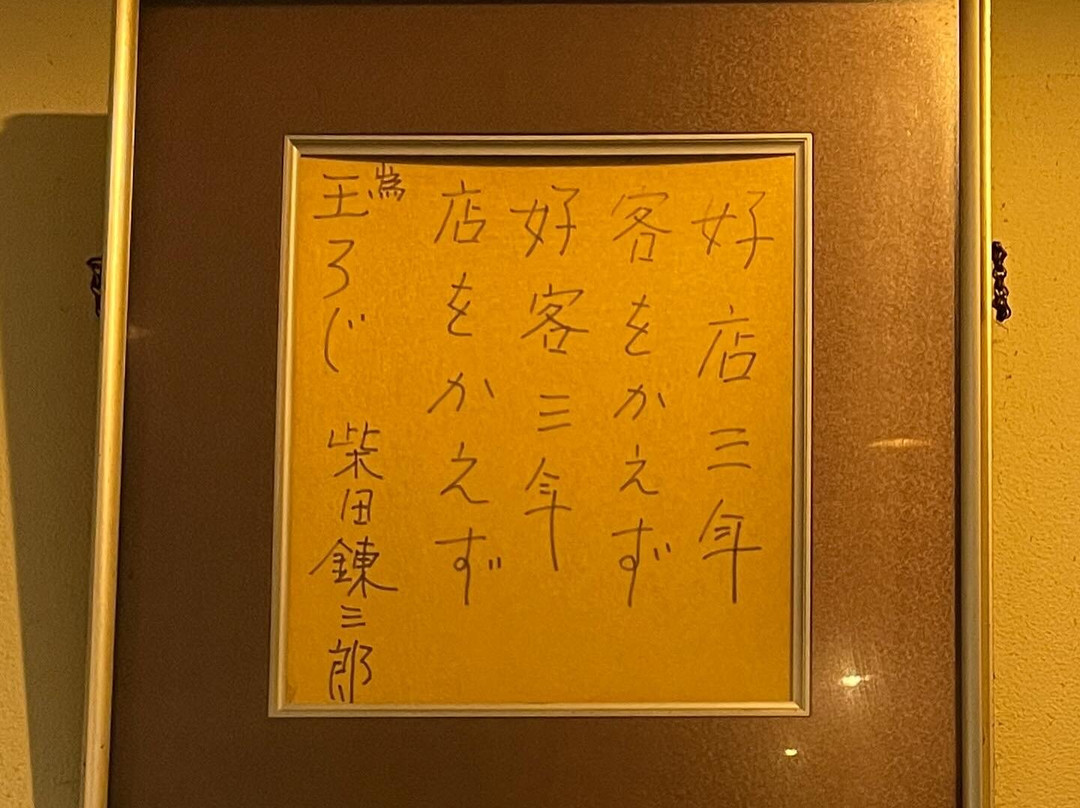 好店三年
客をかえず
好客三年
店をかえず
為
王ろじ 柴田錬三郎